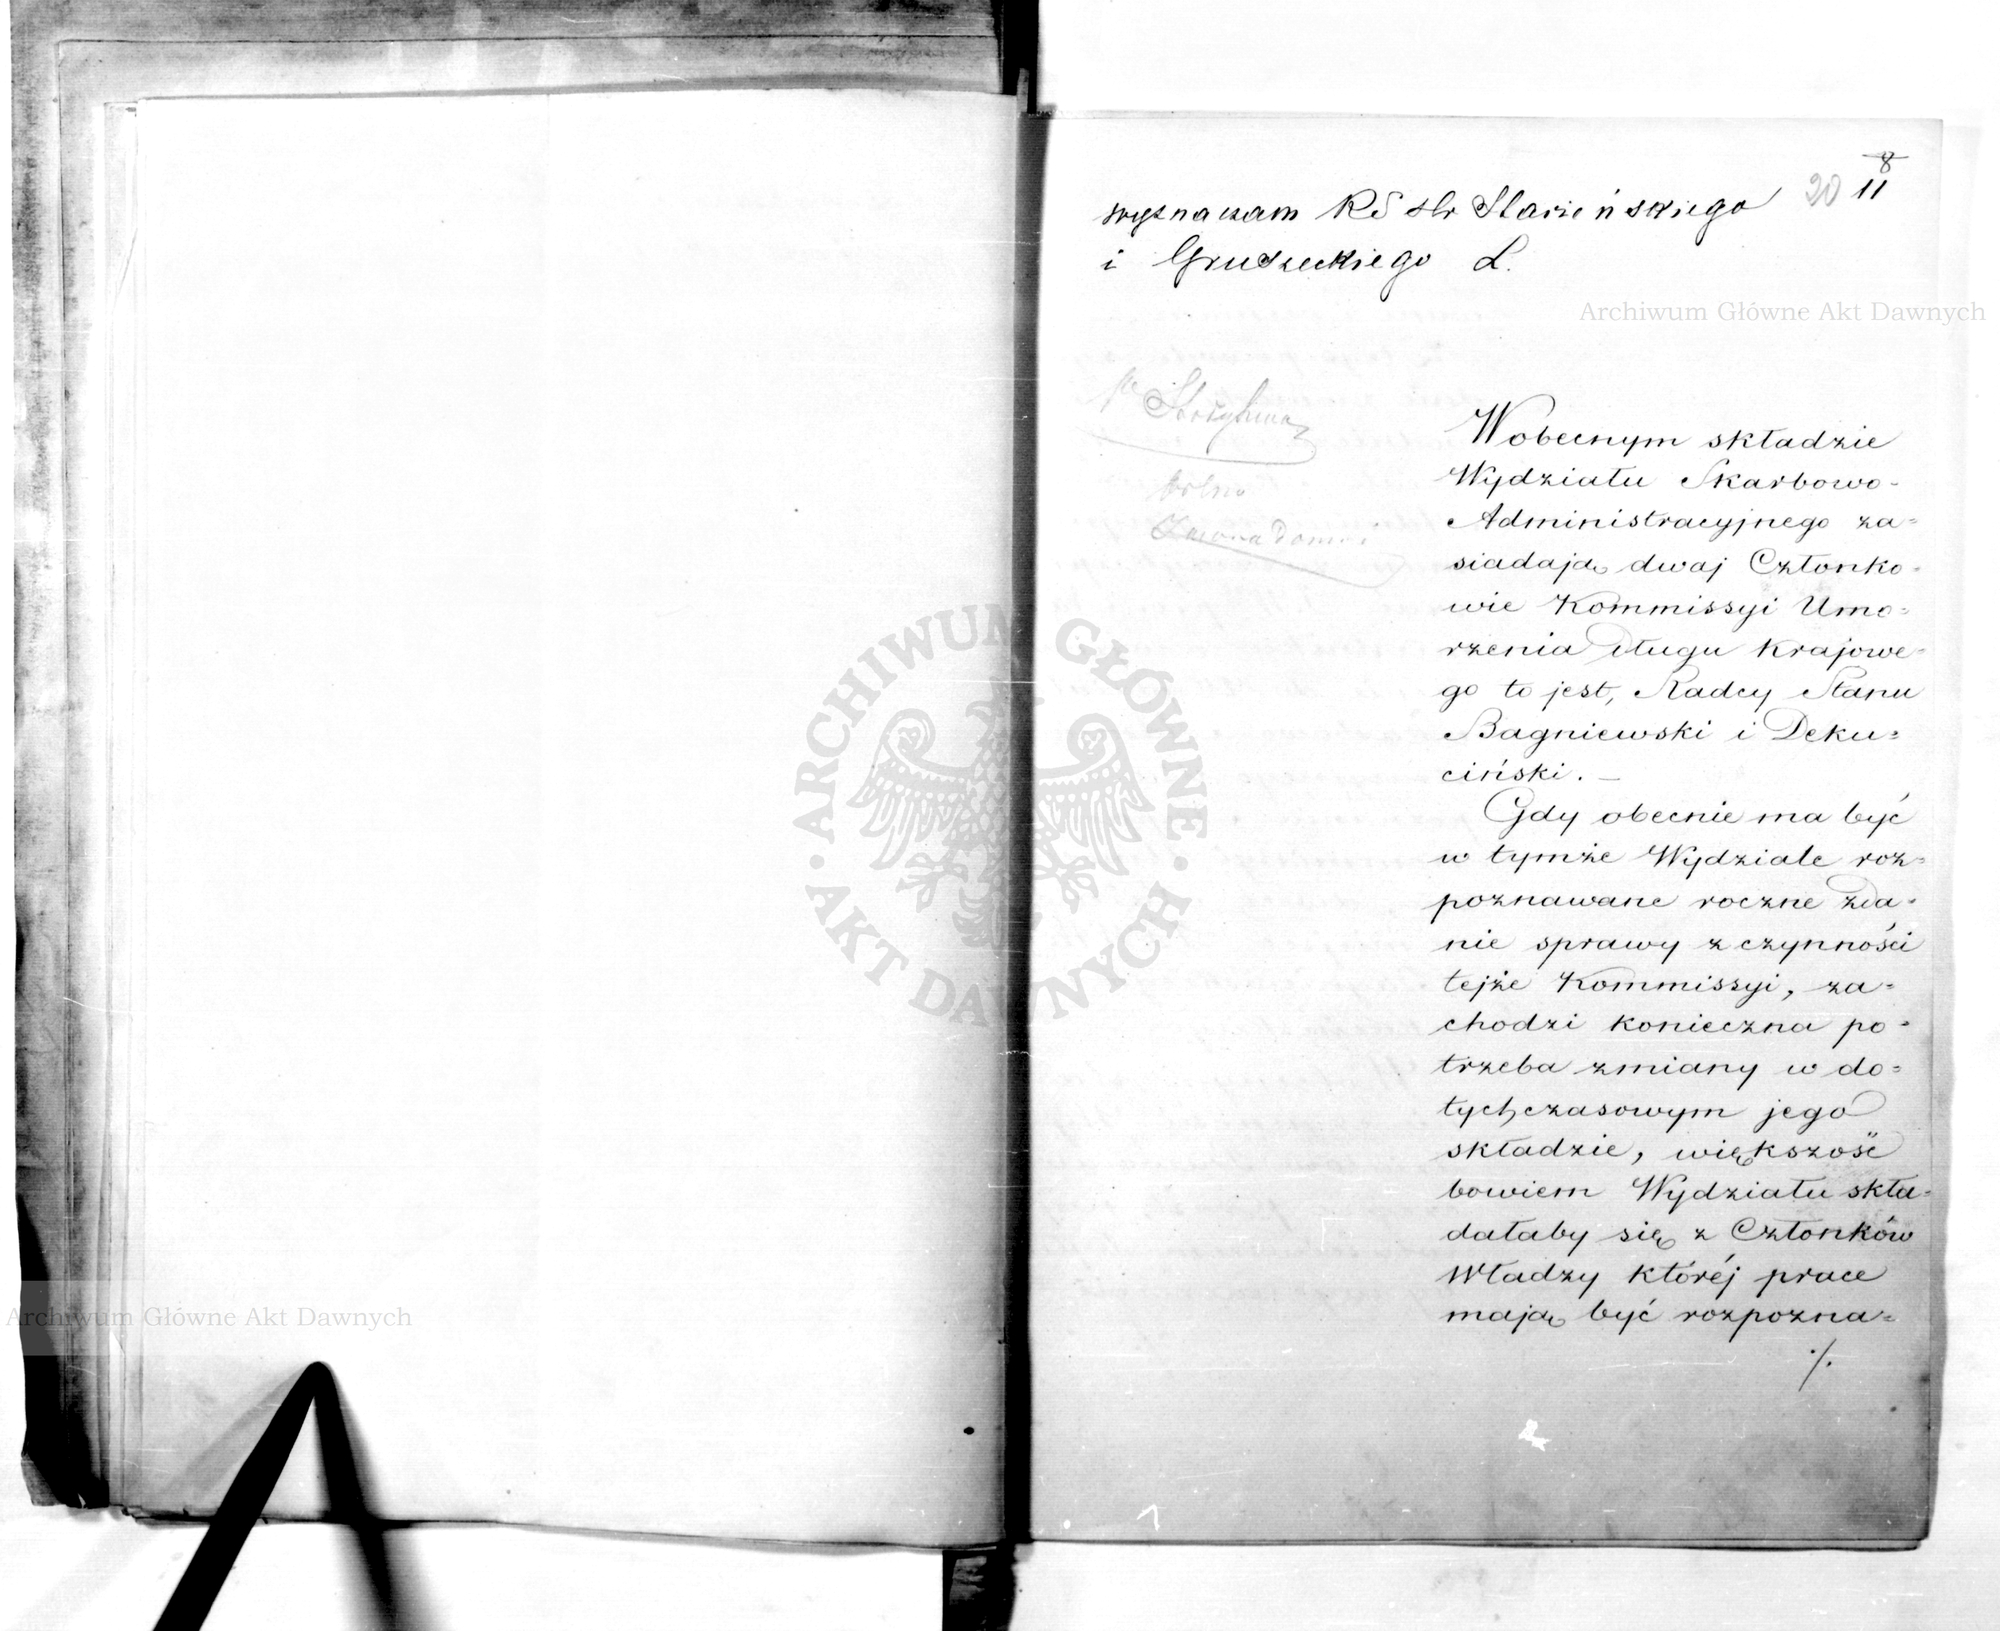 8
20 11
wyznaczam RS Hr Starzeńskiego
i Grudzeckiego Ł.
Archiwum Główne Akt Dawnych
W obecnym składzie
Wydziału Skarbowo-
Administracyjnego za=
siadają dwaj Członko=
wie Kommissyi Umo=
rzenia Długu Krajowe=
go to jest, Radcy Stanu
Bagniewski i Deku=
ciński. —
Gdy obecnie ma być
w tymże Wydziale roz=
poznawane roczne zda=
nie sprawy z czynności
tejże Kommissyi, za=
chodzi konieczna po=
trzeba zmiany w do=
tychczasowym jego
składzie, większość
bowiem Wydziału skła=
dałaby się z Członków
Władzy któréj prace
mają być rozpozna=
./.
ARCHIWUM GŁÓWNE
AKT DAWNYCH
Archiwum Główne Akt Dawnych